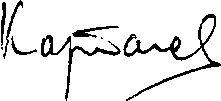 Карталев